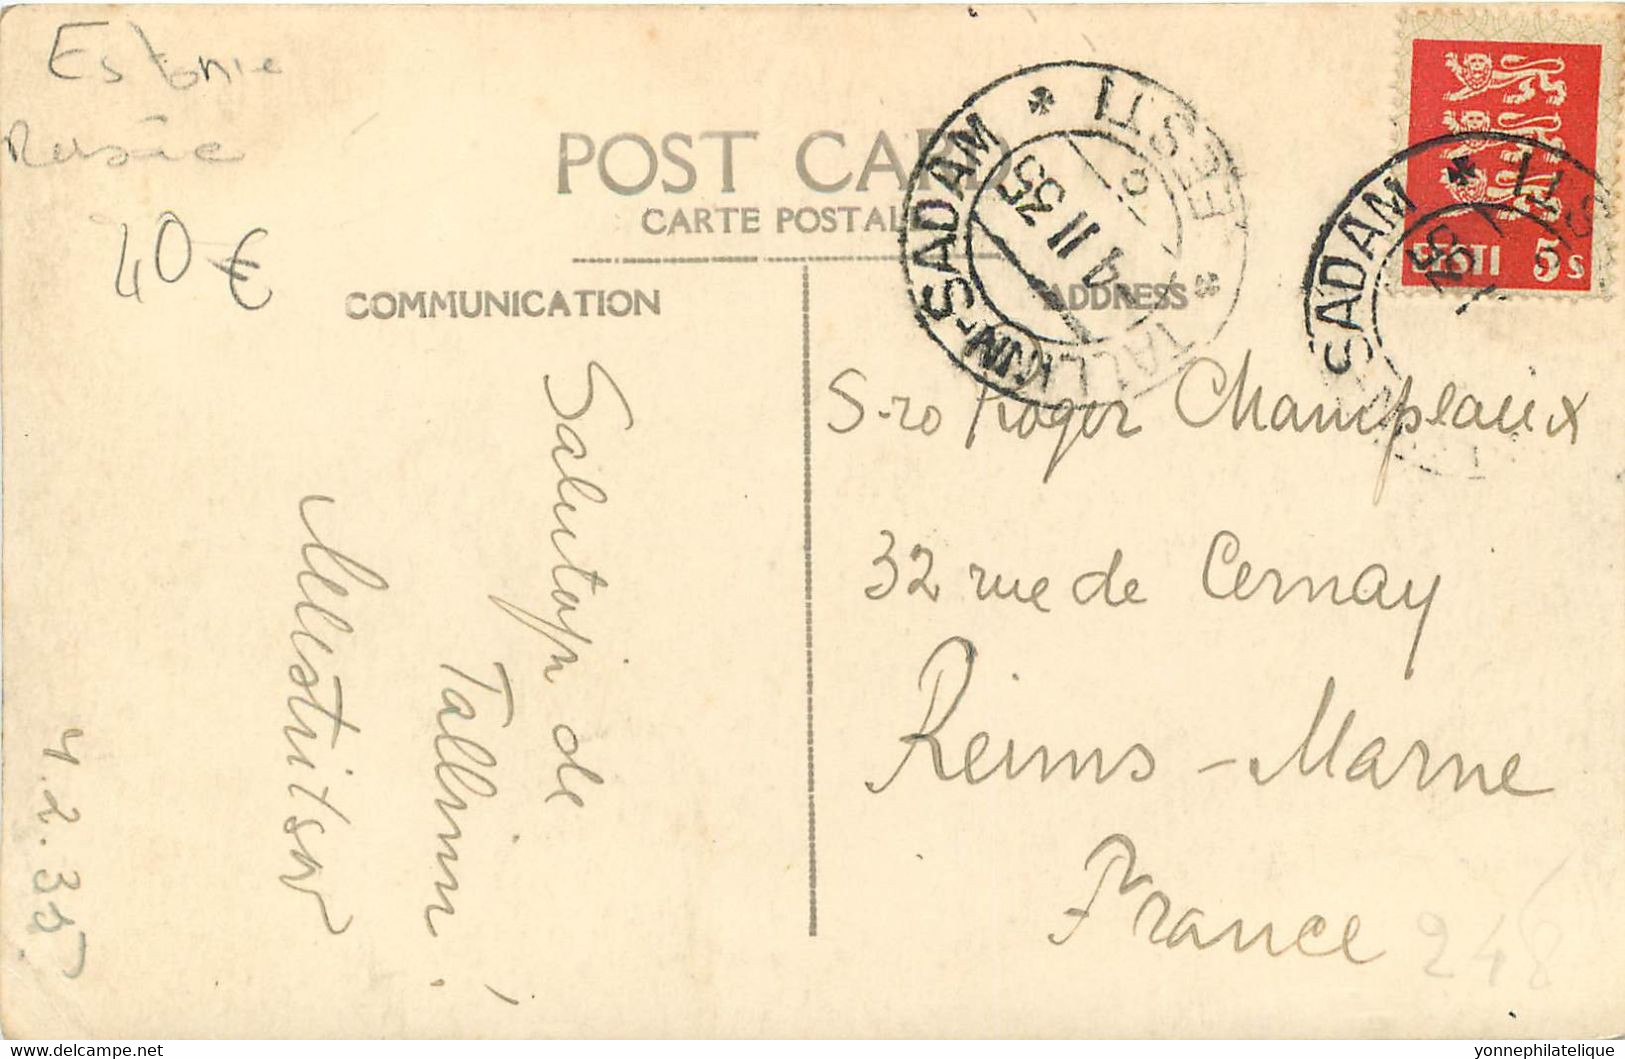 Estonie
Russie
40 €
POST CARD
CARTE POSTALE
COMMUNICATION
ADDRESS
TALLINN-SADAM * EESTI *
4 II 35
TALLINN-SADAM * EESTI
EESTI 5 s
Salutojn de
Tallinn!
4.2.35
S-ro Roger Champeaux
32 rue de Cernay
Reims - Marne
France
248
yonnephilatelique
www.delcampe.net